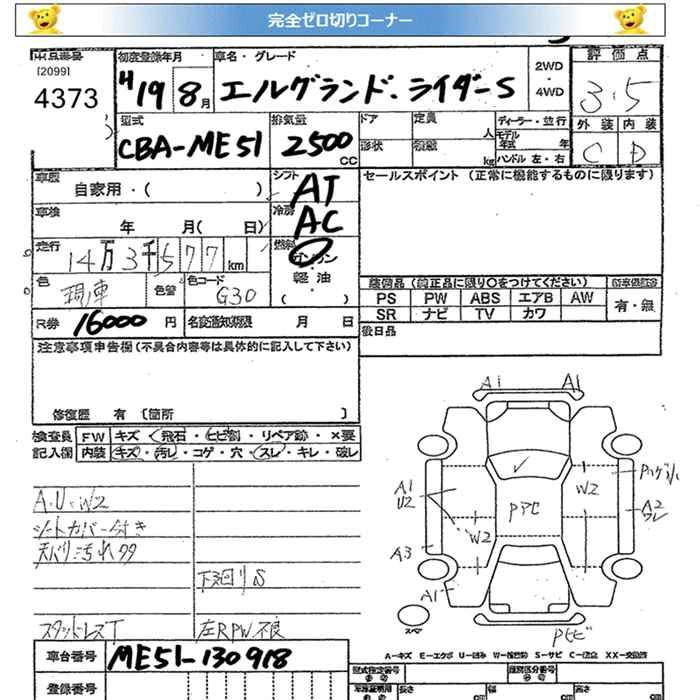 完全ゼロ切りコーナー
出品番号 初度登録年月 車名・グレード 2WD ・ 4WD 評価点
[2099]
4373 H19 8月 エルグランド・ライダーS 3.5
型式 排気量 ドア 定員 人 ディーラー・並行 外装 内装
CBA-ME51 2500 CC 形状 積載 kg モデル年式 年 ハンドル 左・右 C D
車歴 自家用・( ) シフト AT セールスポイント (正常に機能するものに限ります)
車検 年 月( 日) 冷房 AC
走行 14万3千577km 燃料 ガソリン
色 現車 色替 色コード G30 軽油 ( )
装備品 (純正品に限り○をつけてください)
PS PW ABS エアB AW 有・無
SR ナビ TV カワ
R券 16000 円 名変通知期限 月 日 後日品
注意事項申告欄 (不具合内容等は具体的に記入して下さい)
修復歴 有 [箇所 ]
検査員 FW キズ・飛石・ヒビ割・リペア跡・×要
記入欄 内装 キズ・汚レ・コゲ・穴・スレ・キレ・破レ
A.U.W2
シートカバー付き
天バリ汚れ
下回りS
スタッドレスT 左RPW不良
A1 A1
A1 U2 W2 PアビA2 ワレ
A3 W2
A1
スペア
Pヒビ
A-キズ E-エクボ U-凹み W-補修跡 S-サビ C-腐食 XX-交換済
車台番号 ME51-130918
登録番号
型式指定番号 類別区分番号
長さ cm 幅 cm 高さ cm